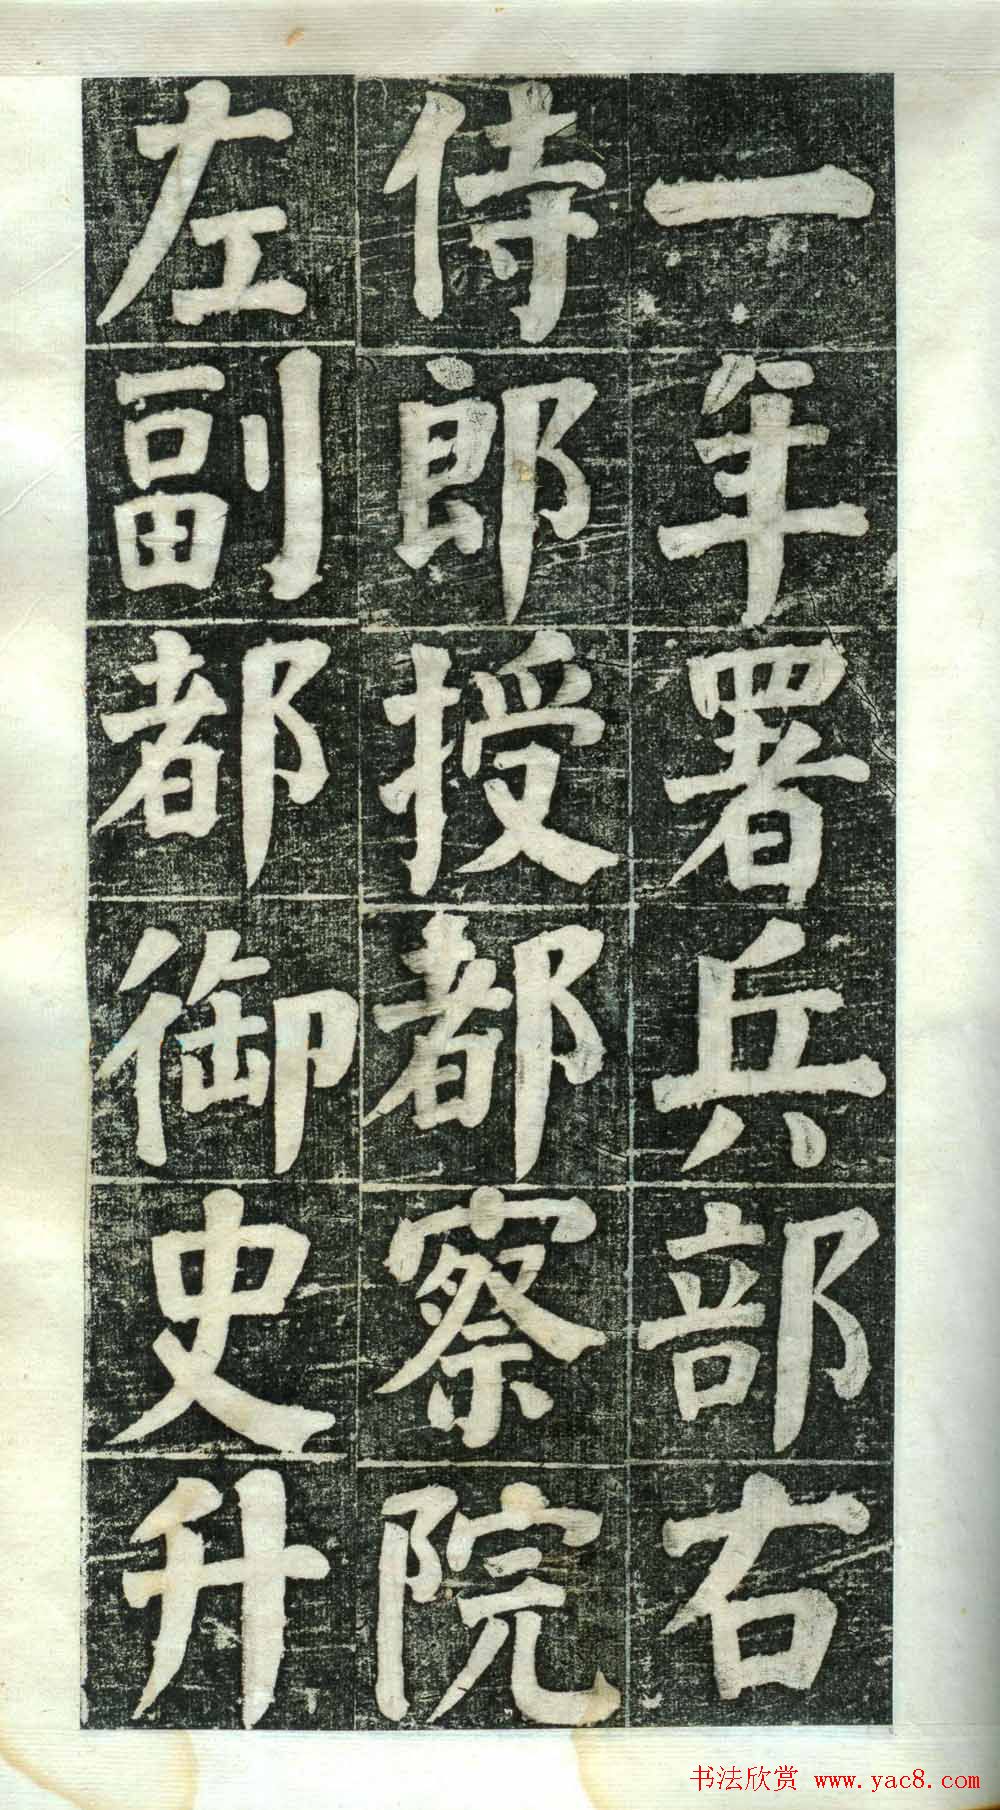 一年署兵部右
侍郎授都察院
左副都御史升
书法欣赏 www.yac8.com